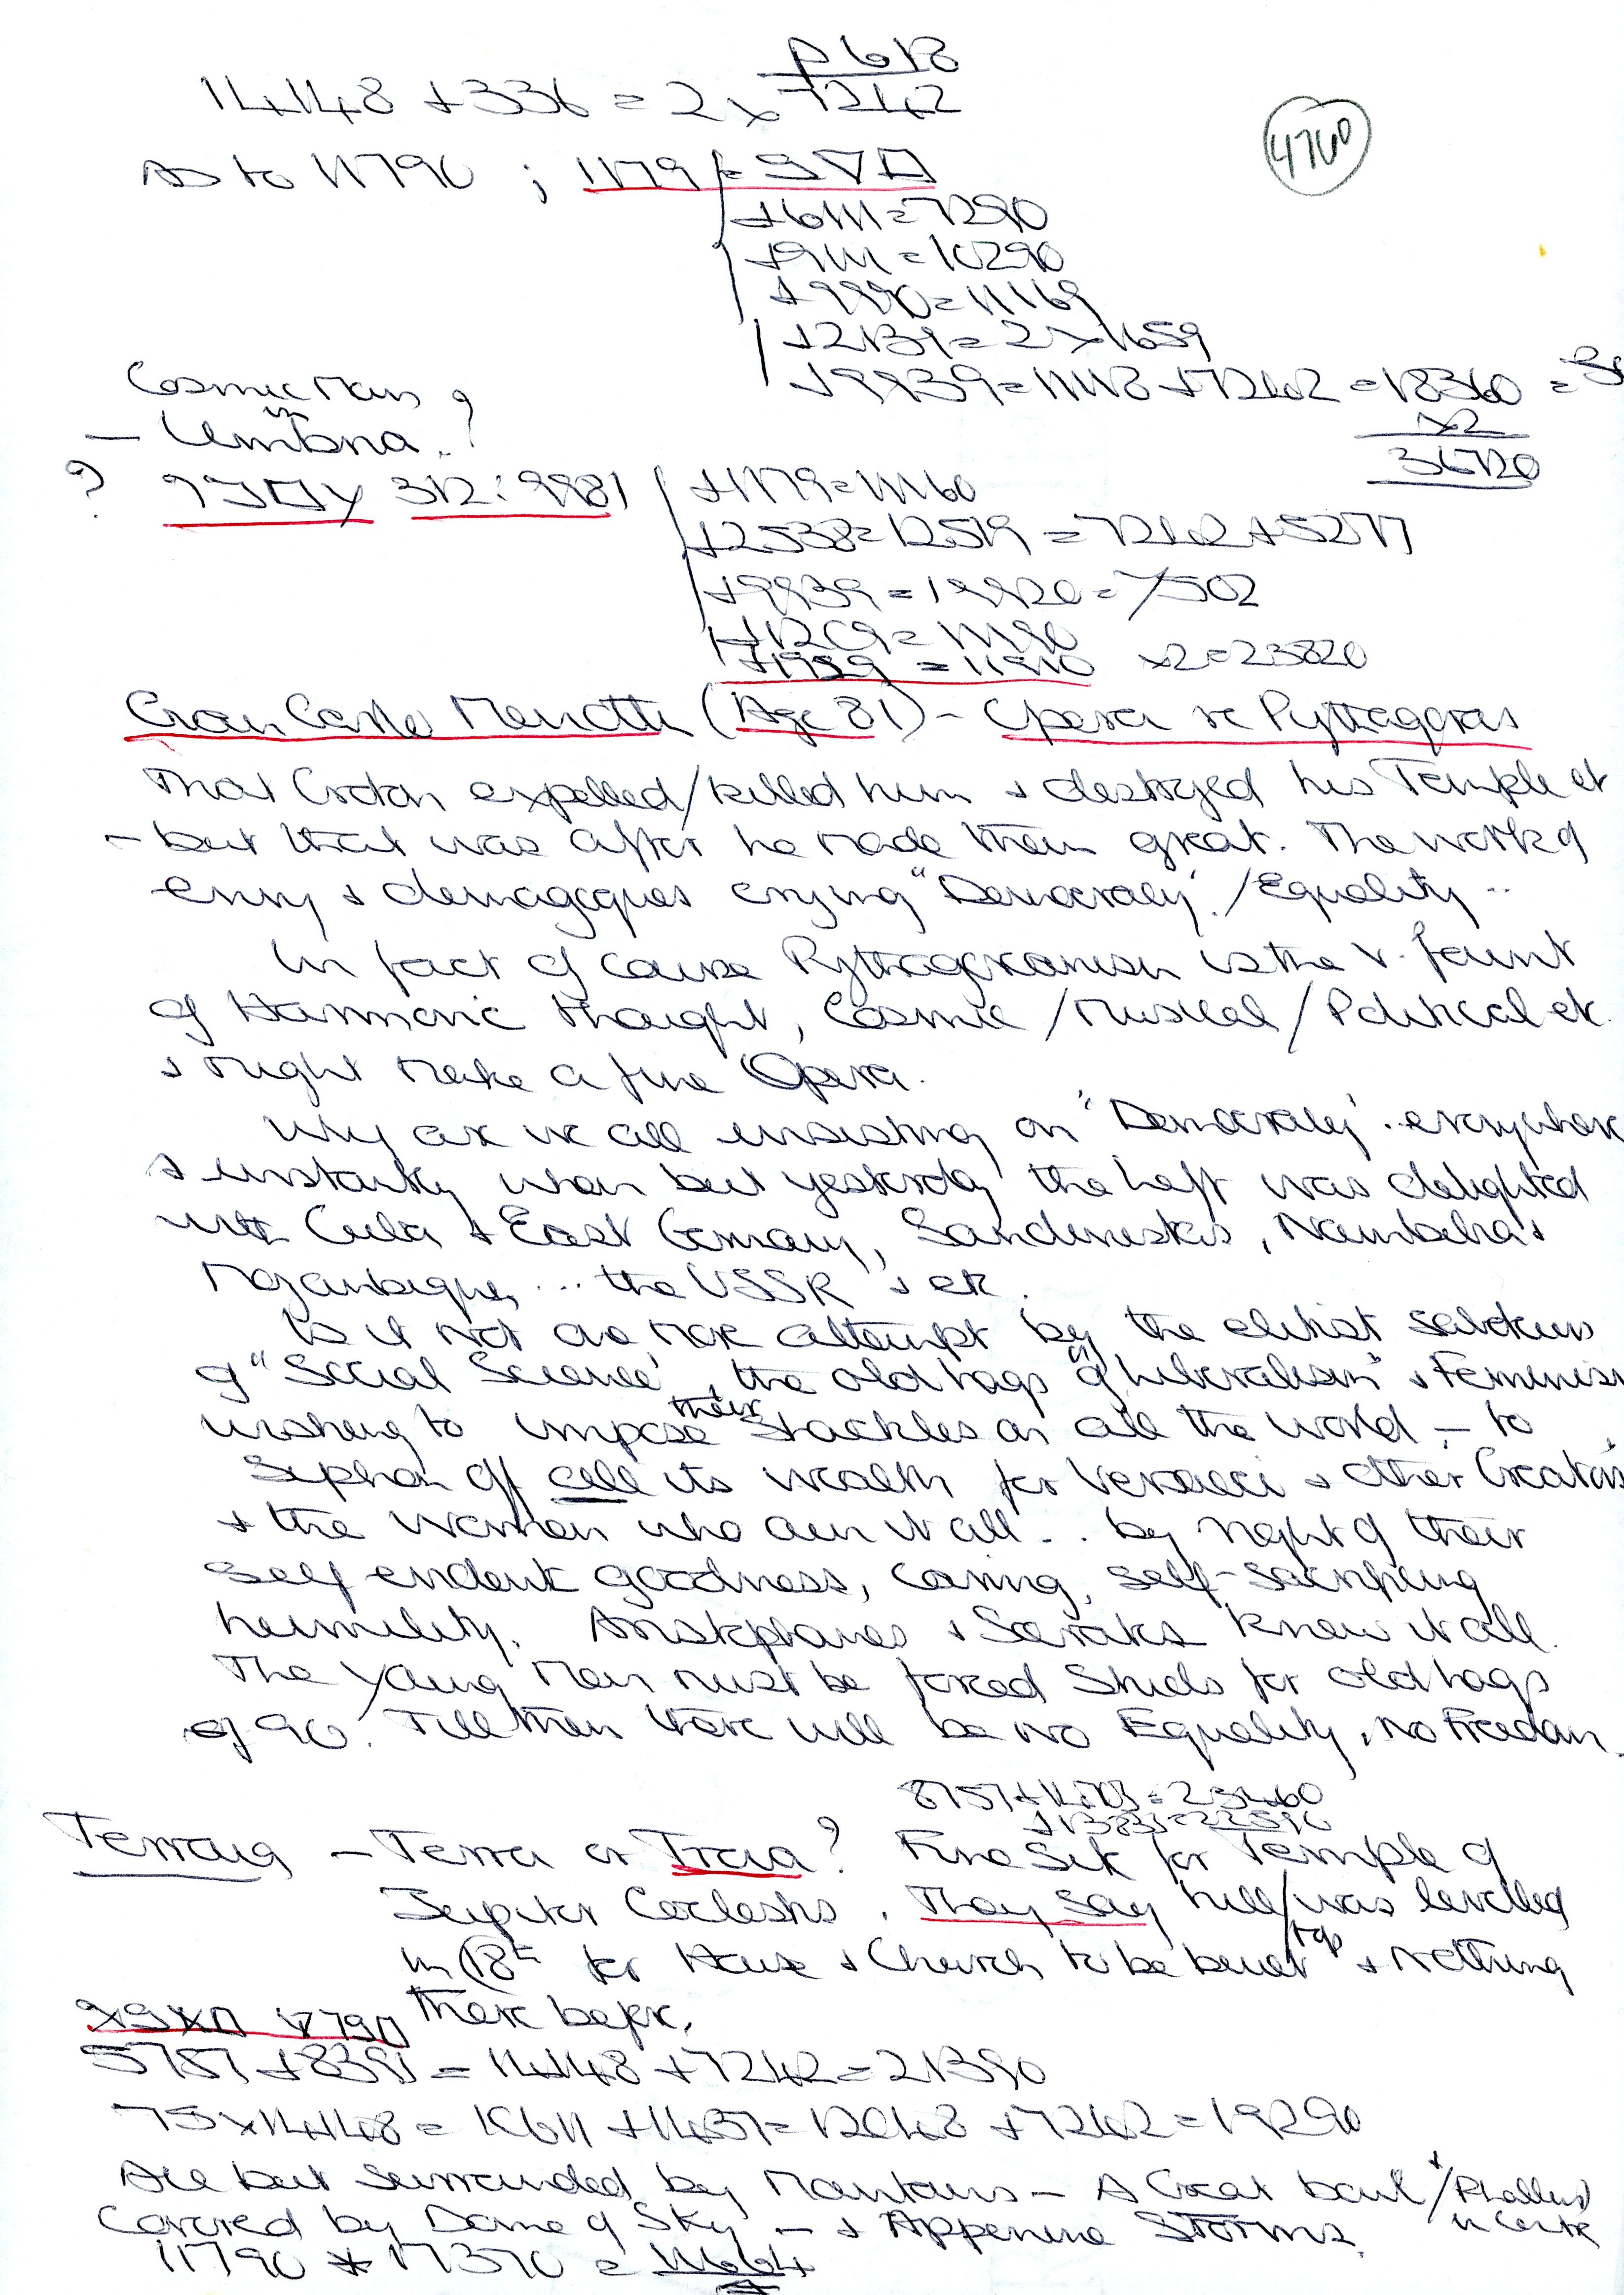 р618
14148 + 336 = 2 x 7242
4760
As to 11790 ; 1179 =
+6111 = 7290
+9111 = 10290
+9990 = 11169
+2139 = 2 x 1659
+9939 = 11118 + 7242 = 18360 =
x2
36720
Cosmic Man ?
in
— Umbria . ?
? 312 : 9981
+1179 = 11160
+2538 = 12519 = 7242 + 5277
+9939 = 19920 =
+1209 = 11190
+1959 = 11940 x2 = 23820
Gian Carlo Menotti (Age 81) - Opera re Pythagoras
That Croton expelled/killed him + destroyed his Temple et
- but that was after he made them great. The work of
envy + demagogues crying "Democracy"./Equality ..
In fact of course Pythagoreanism is the v. fount
of Harmonic thought, Cosmic / Musical / Political etc.
+ might make a fine Opera.
Why are we all insisting on "Democracy" .. everywhere
+ instantly when but yesterday the Left was delighted
with Cuba + East Germany, Sandinistas, Namibia +
Mozambique, ... the USSR + etc.
Is it not one more attempt by the elitist
of "Social Science", the old hags of "Liberalism" + Feminism
wishing to impose their shackles on all the world - to
siphon off all its wealth for + other
+ the women who own it all .. by right of their
self evident goodness, caring, self-sacrificing
humility. Aristophanes + Socrates knew it all.
The Young Men must be forced Studs for old hags
of 90. Till then there will be no Equality, no Freedom.
8757 + 14703 = 23460
+ 13833 = 22590
Terraia - Terra or Troia? Fine Site for Temple of
Jupiter Coelestis. They say hill/was levelled
top
in 18th for House + Church to be built + nothing
there before.
5757 + 8391 = 14148 + 7242 = 21390
75 x 14148 = 10611 + 1437 = 12048 + 7242 = 19290
All but surrounded by Mountains - A Great bowl / + Phallus
in centre
Covered by Dome of Sky - + Appenine Storms.
11790 + 17370 = 11664